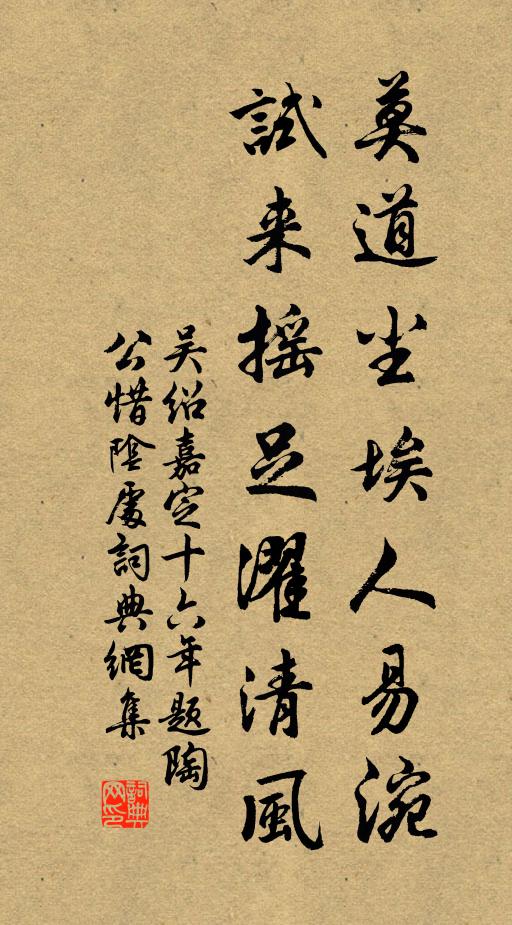 莫道尘埃人易涴
試来摇足濯清風
吴紹嘉定十六年题陶
公惜陰處詞典網集
詞典
网印